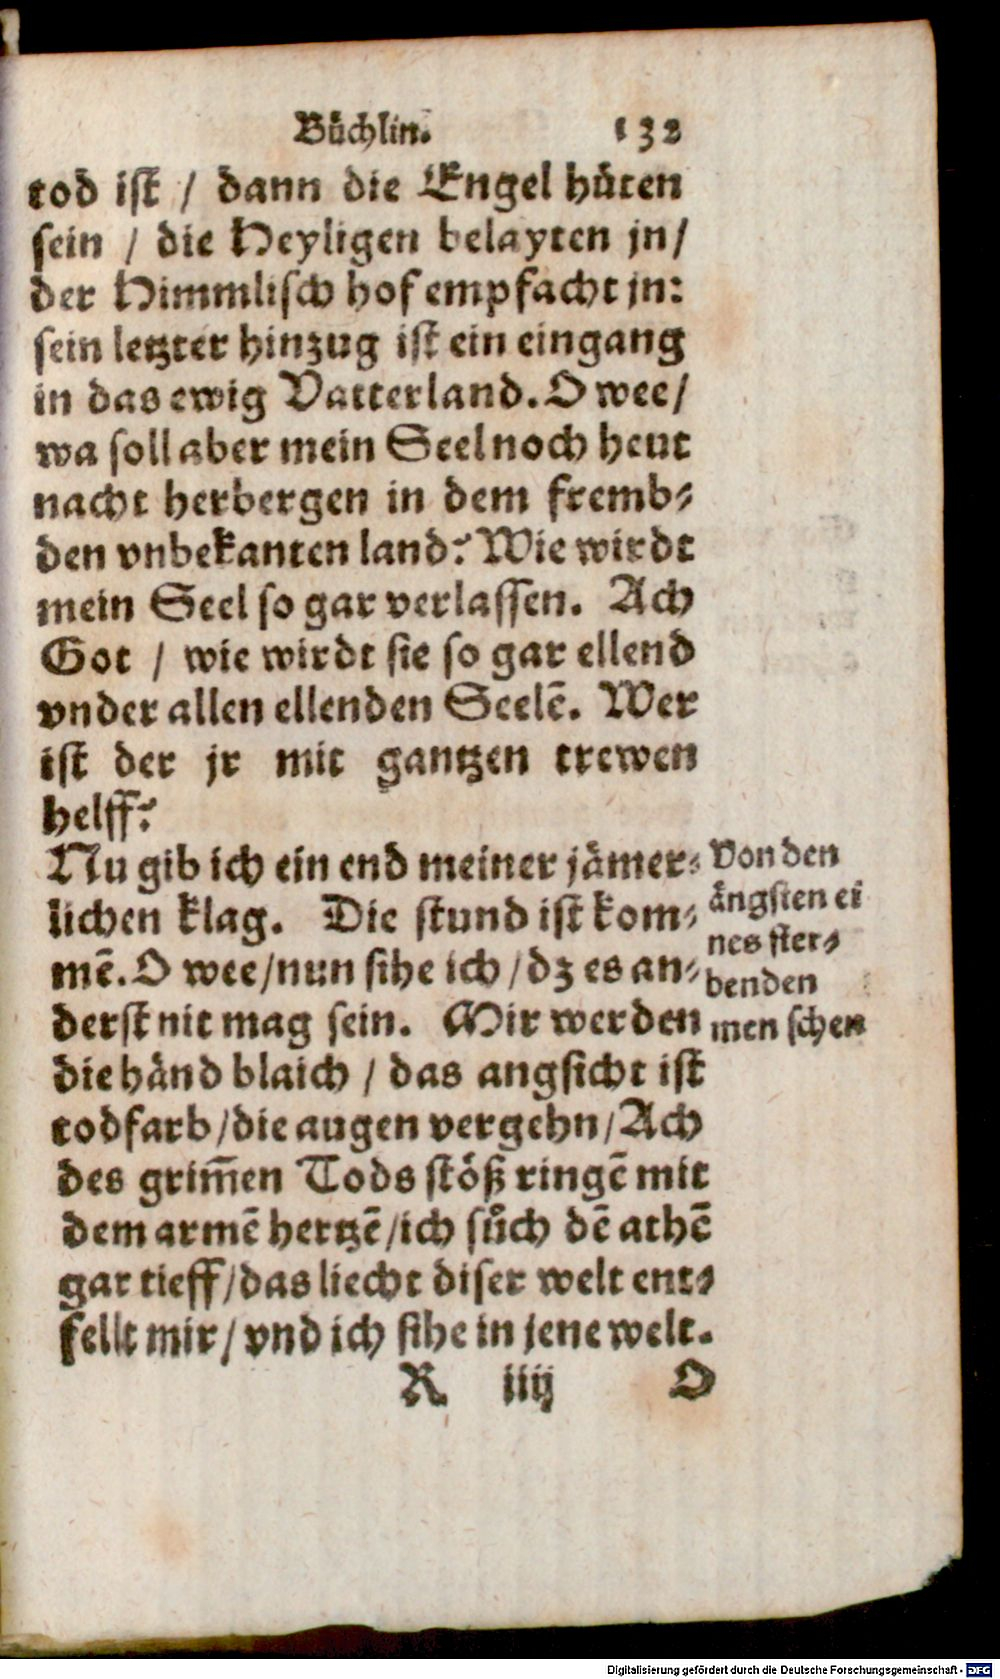 Büchlin. 132
tod ist / dann die Engel hüten
sein / die Heyligen belayten jn /
der Himmlisch hof empfacht jn:
sein letzter hinzug ist ein eingang
in das ewig Vatterland. O wee /
wa soll aber mein Seel noch heut
nacht herbergen in dem fremb-
den vnbekanten land? Wie wirdt
mein Seel so gar verlassen. Ach
Got / wie wirdt sie so gar ellend
vnder allen ellenden Seelē. Wer
ist der jr mit gantzen trewen
helff?
Nu gib ich ein end meiner jämer-
lichen klag. Die stund ist kom-
mē. O wee / nun sihe ich / dz es an-
derst nit mag sein. Mir werden
die händ blaich / das angsicht ist
todfarb / die augen vergehn / Ach
des grim̄en Tods stöß ringē mit
dem armē hertzē / ich sůch dē athē
gar tieff / das liecht diser welt ent-
fellt mir / vnd ich sihe in jene welt.
Von den
ängsten ei
nes ster-
benden
menschen
R iiij O
Digitalisierung gefördert durch die Deutsche Forschungsgemeinschaft - DFG